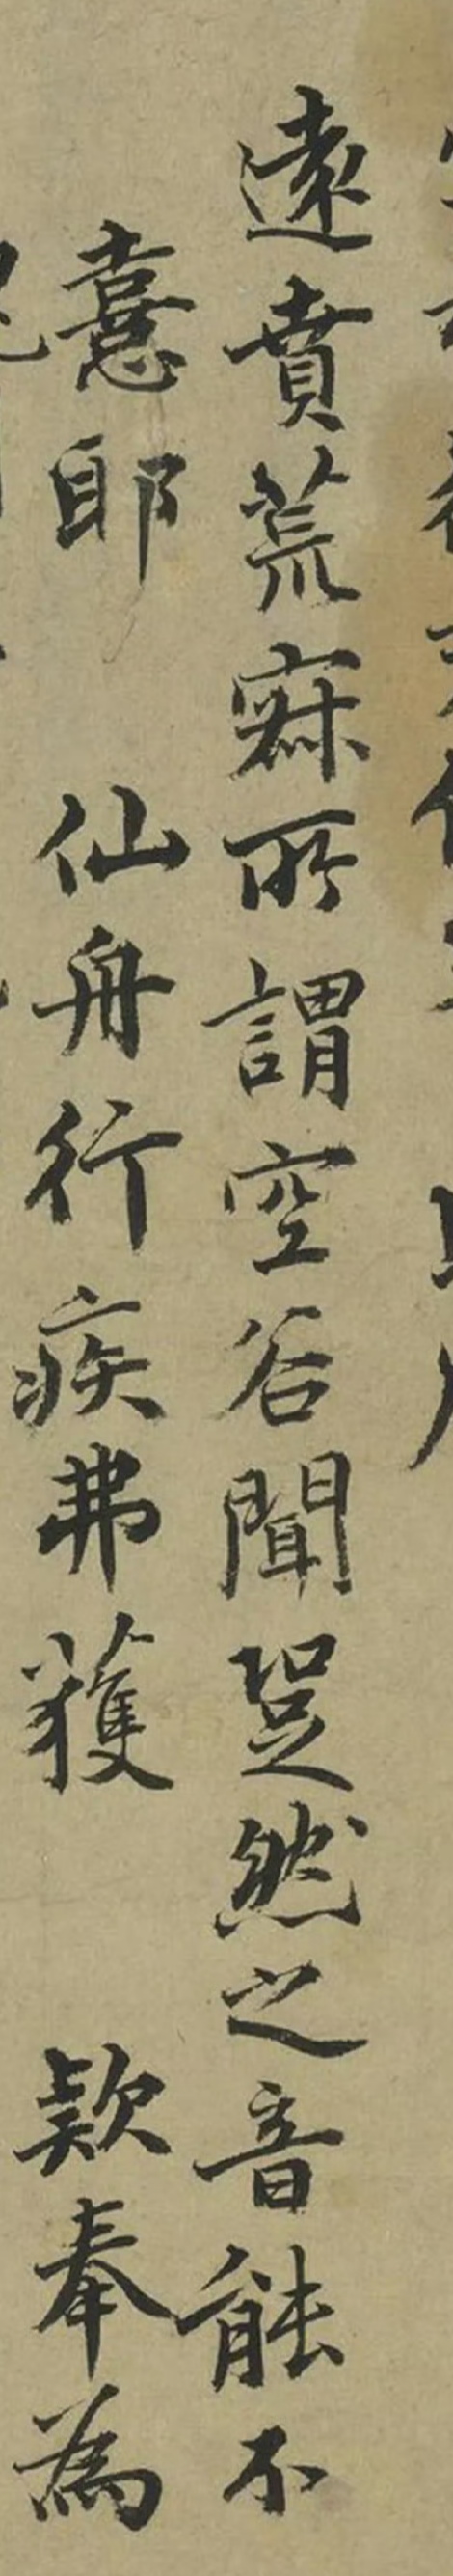 遠賁荒寂所謂空谷聞跫然之音能不
憙耶　仙舟行疾弗獲　款奉為